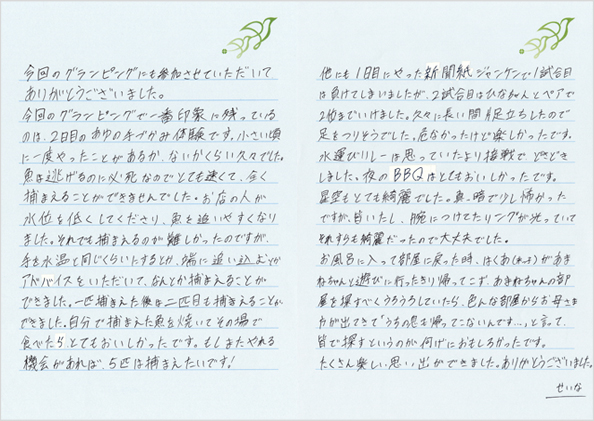 今回のグランピングにも参加させていただいて
ありがとうございました。
今回のグランピングで一番印象に残っている
のは、2日目のあゆの手づかみ体験です。小さい頃
に一度やったことがあるか、ないかくらい久々でした。
魚は逃げるのに必死なのでとても速くて、全く
捕まえることができませんでした。お店の人が
水位を低くしてくださり、魚を追いやすくなり
ました。それでも捕まえるのが難しかったのですが、
手を水温と同じくらいにするとか、端に追い込むとか
アドバイスをいただいて、なんとか捕まえることが
できました。一匹捕まえた後は二匹目も捕まえることが
できました。自分で捕まえた魚を焼いてその場で
食べたら、とてもおいしかったです。もしまたやれる
機会があれば、5匹は捕まえたいです!
他にも1日目にやった新聞紙ジャンケンで1試合目
は負けてしまいましたが、2試合目はひな和んとペアで
2位までいけました。久々に長い間片足立ちしたので
足をつりそうでした。危なかったけど楽しかったです。
水運びリレーは思っていたより接戦でどきどき
しました。夜のBBQはとてもおいしかったです。
星空もとても綺麗でした。真っ暗で少し怖かった
ですが、皆いたし、腕につけてたリングが光っていて
それすらも綺麗だったので大丈夫でした。
お風呂に入って部屋に戻った時、はくあ
ねちゃんと遊びに行ったきり帰ってこず、あまねちゃんの部
屋を探すべくうろうろしていたら、色んな部屋からお母さま
方が出てきて「うちの息も帰ってこないんです…」と言って、
皆で探すというのが何げにおもしろかったです。
たくさん楽しい思い出ができました。ありがとうございました。
せいな